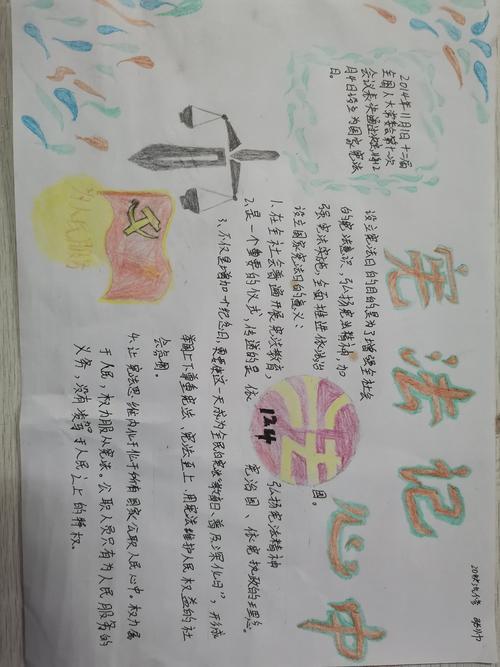 宪法记心中
2014年11月1日十二届
全国人大常委会第十一次
会议表决通过决定将12
月4日设立为国家宪法
日。
设立宪法日的目的是为了增强全社会
的宪法意识，弘扬宪法精神、加
强宪法实施，全面推进依法治
国。
设立国家宪法日的意义：
1、在全社会普遍开展宪法教育，
弘扬宪法精神
2、是一个重要的仪式，传递的是依
宪治国、依宪执政的理念。
3、不仅是增加一个纪念日，更要使这一天成为全民的宪法“教育日、普及深化日”，形成
举国上下尊重宪法、宪法至上、用宪法维护人民权益的社
会氛围。
4、让宪法思维内化于所有国家公职人员心中。权力属
于人民，权力服从宪法。公职人员只有为人民服务的
义务，没有凌驾于人民之上的特权。
法
12.4
为人民服务